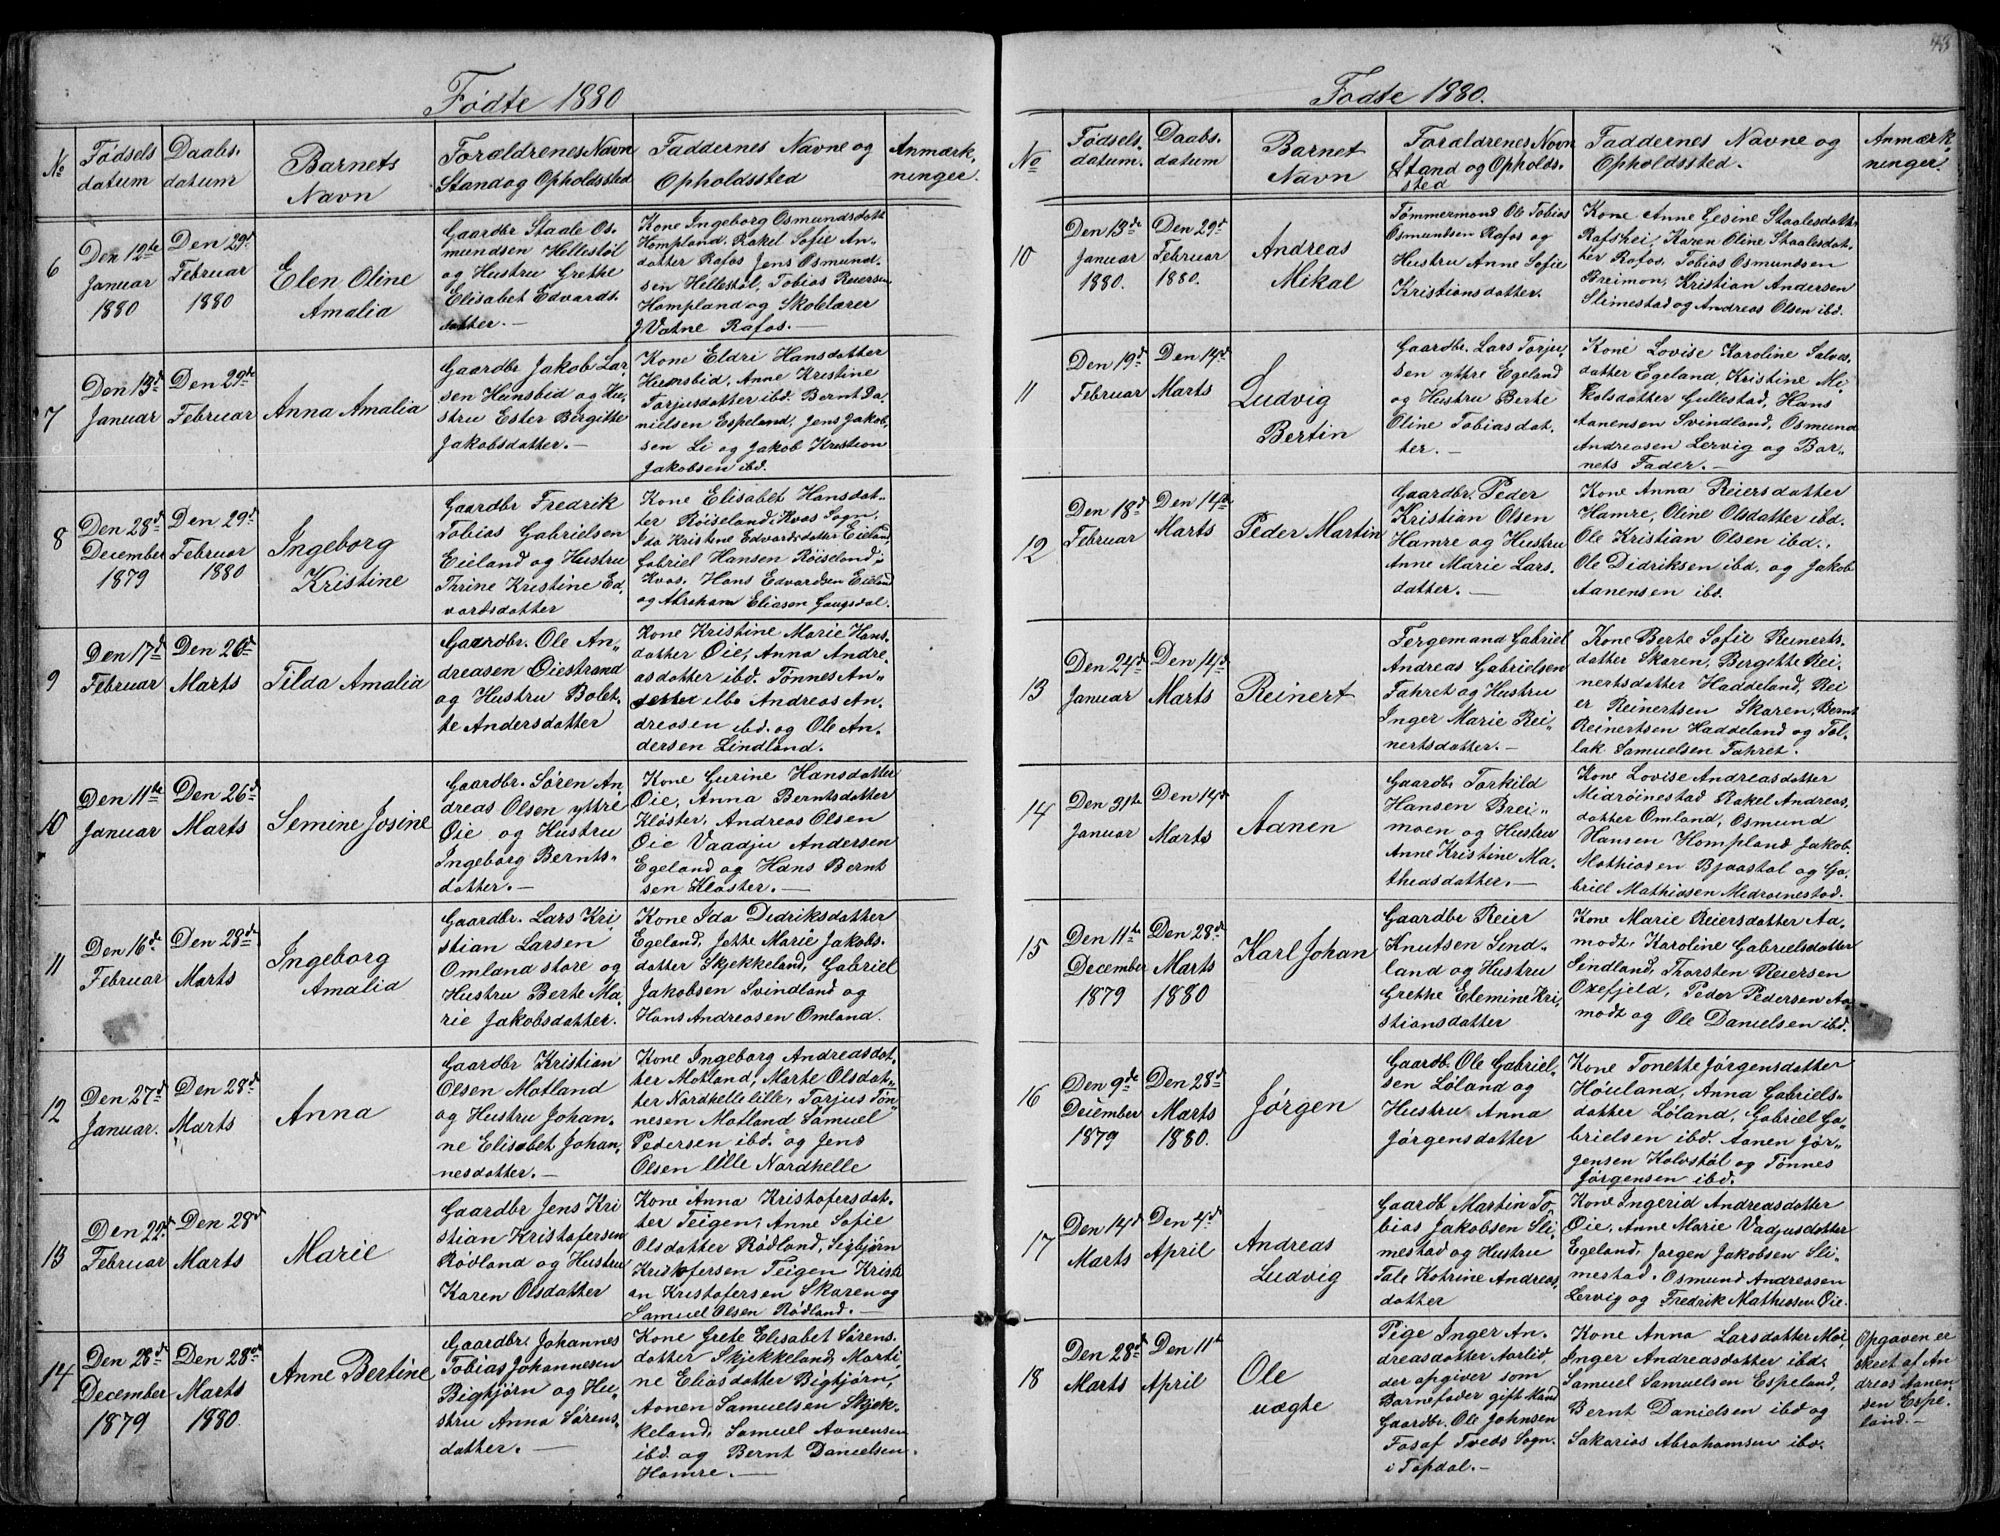 Fødte 1880
No
Fødsels
datum
Daabs-
datum
Barnets
Navn
Forældrenes Navn
Stand og Opholdssted
Faddernes Navne og
Opholdssted
Anmærk-
ninger.
6
Den 12te
Januar
1880
Den 29d
Februar
1880
Elen Oline
Amalia
Gaardbr Staale Os-
mundsen Hellestøl
og Hustru Grethe
Elisabet Edvards
datter.—
Kone Ingeborg Osmundsdatt
Hompland. Rakel Sofie An-
datter Rafos Jens Osmund
sen Hellestøl, Tobias Reiersen
Hompland og Skolelærer
J Vatne Rafos.—
7
Den 13d
Januar
Den 29de
Februar
Anna Amalia
Gaardbr Jakob Lar-
sen Hunsbid og Hu-
stru Ester Bergitte
Jakobsdatter.—
Kone Eldri Hansdatter
Hunsbid, Anne Kristine
Torjusdatter ibd. Bernt Da-
nielsen Espeland, Jens Jakob-
sen Li og Jakob Kristian
Jakobsen ibd.
8
Den 28d
December
1879
Den 29d
Februar
1880
Ingeborg
Kristine
Gaardbr Fredrik
Tobias Gabrielsen
Eieland og Hustru
Thrine Kristine Ed-
vardsdatter
Kone Elisabet Hansdat-
ter Røiseland, Kvas Sogn,
Ida Kristine Edvardsdatter Eieland,
Gabriel Hansen Røiseland i
Kvas. Hans Edvardsen Eieland
og Abraham Eliasen Gaugsdal.
9
Den 17d
Februar
Den 26d
Marts
Tilda Amalia
Gaardbr. Ole An-
dreasen Øiestrand
og Hustru Bolet-
te Andersdatter
Kone Kristine Marie Hans-
datter Øie, Anna Andre-
asdatter ibd. Tønnes An-
ibd Andreas An-
dreasen ibd. og Ole An-
dersen Lindland.
10
Den 11te
Januar
Den 26d
Marts
Semine Josine
Gaardbr. Søren An
dreas Olsen yttre
Øie og Hustru
Ingeborg Bernts-
datter.—
Kone Gurine Hansdatter
Øie, Anna Berntsdatter
Kløster, Andreas Olsen
Øie Vaadju Andersen
Egeland og Hans Bernt
sen Kløster.—
11
Den 16d
Februar
Den 28d
Marts
Ingeborg
Amalia
Gaardbr. Lars Kri-
stian Larsen
Omland store og
Hustru Berte Ma-
rie Jakobsdatter.
Kone Ida Didriksdatter
Egeland, Jette Marie Jakobs-
datter Skjekkeland, Gabriel
Jakobsen Svindland og
Hans Andreasen Omland.
12
Den 27d
Januar.
Den 28d
Marts
Anna
Gaardbr Kristian
Olsen Motland
og Hustru Johan-
ne Elisabet Johan-
nesdatter.—
Kone Ingeborg Andreasdat-
ter Motland, Marte Olsdat-
ter Nordhelle lille, Torjus Tøn-
nesen Motland Samuel
Pedersen ibd. og Jens
Olsen lille Nordhelle
13
Den 22d
Februar
Den 28d
Marts
Marie
Gaardbr Jens Kri
stian Kristofersen
Rødland og Hustru
Karen Olsdatter
Kone Anna Kristofersdat-
ter Teigen, Anne Sofie
Olsdatter Rødland, Sigbjørn
Kristofersen Teigen Kristi
an Kristofersen Skaren og
Samuel Olsen Rødland.—
14
Den 28d
December
1879
Den 28d
Marts
1880.
Anne Bertine
Gaardbr. Johannes
Tobias Johannesen
Bighjørn og Hu-
stru Anna Sørens-
datter.—
Kone Grete Elisabet Sørens-
datter Skjekkeland, Marti-
ne Eliasdatter Bighjørn,
Aanen Samuelsen Skjek-
keland. Samuel Aanensen
ibd. og Bernt Danielsen
Hamre.—
43
Fødte 1880.
No
Fødsels-
datum.
Daabs-
datum
Barnet
Navn
Forældrenes Navn
Stand og Opholds-
sted
Faddernes Navne og
Opholdssted.
Anmærk-
ninger.
10
Den 13de
Januar
1880.
Den 29d
Februar
1880.
Andreas
Mikal
Tømmermand Ole Tobias
Osmundsen Rafos og
Hustru Anne Sofie
Kristiansdatter.
Kone Anne Gesine Staalesdatter
Rafshei, Karen Oline Staalesdat-
ter Rafos. Tobias Osmundsen
Breimon, Kristian Andersen
Slimestad og Andreas Olsen ibd.
11
Den 19d
Februar
Den 14d
Marts
Ludvig
Bertin
Gaardbr. Lars Torju
sen yttre Egeland
og Hustru Berte
Oline Tobiasdat-
ter.—
Kone Lovise Karoline Salves-
datter Egeland, Kristine Ni-
kolsdatter Gullestad, Hans
Aanensen Svindland, Osmund
Andreasen Lervig og Bar-
nets Fader.—
12
Den 18d
Februar
Den 14de
Marts
Peder Martin
Gaardbr. Peder
Kristian Olsen
Hamre og Hustru
Anne Marie Lars-
datter.—
Kone Anna Reiersdatter
Hamre, Oline Olsdatter ibd.
Ole Kristian Olsen ibd.
Ole Didriksen ibd. og Jakob
Aanensen ibd.
13
Den 24d
Januar
Den 14d
Marts
Reinert
Fergemand Gabriel
Andreas Gabrielsen
Fahret og Hustru
Inger Marie Rei-
nertsdatter.—
Kone Berte Sofie Reinerts-
datter Skaren, Bergette Rei-
nertsdatter Haddeland, Rei
er Reinertsen Skaren, Bernt
Reinertsen Haddeland og Tol-
lak Samuelsen Fahret.
14
Den 31te
Januar
Den 14d
Marts
Aanen
Gaardbr Torkild
Hansen Brei-
moen og Hustru
Anne Kristine Ma-
theasdatter.—
Kone Lovise Andreasdatter
Midrøinestad Rakel Andreas-
datter Omland, Osmund
Hansen Hompland Jakob
Mathiasen Bjaastøl og Ga-
briel Mathiasen Midrøinestad.
15
Den 11te
December
1879
Den 28d
Marts
1880
Karl Johan
Gaardbr Reier
Knutsen Sind-
land og Hustru
Grethe Elemine Kri
stiansdatter
Kone Marie Reiersdatter Aa-
modt, Karoline Gabrielsdatter
Sindland, Thorsten Reiersen
Oxefjeld, Peder Pedersen Aa-
modt og Ole Danielsen ibd.
16
Den 9de
December
1879
Den 28d
Marts
1880.
Jørgen
Gaardb. Ole Gabriel-
sen Løland og
Hustru Anna
Jørgensdatter
Kone Tonette Jørgensdatter
Høuland, Anna Gabriels-
datter Løland, Gabriel Ga-
brielsen ibd. Aanen Jør-
gensen Kolvstøl og Tønnes
Jørgensen ibd.
17
Den 14d
Marts
Den 4d
April
Andreas
Ludvig
Gaardb Martin To-
bias Jakobsen Sli-
mestad og Hustru
Tale Katrine Andreas
datter
Kone Ingerid Andreasdatter
Øie, Anne Marie Vadjusdatter
Egeland, Jørgen Jakobsen Sli-
mestad. Osmund Andreasen
Lervig og Fredrik Mathiasen Øie.
18
Den 28d
Marts
Den 11te
April
Ole
uægte
Pige Inger An-
dreasdatter Aarlid,
der opgiver som
Barnefader gift Mand
Gaardbr. Ole Johnsen
Fosaf Tveds Sogn
i Topdal.—
Kone Anna Larsdatter Moi,
Inger Andreasdatter ibd.
Samuel Samuelsen Espeland,
Bernt Danielsen ibd og
Sakarias Abrahamsen ibd.
Opgaven er
skret af An
dreas Aanen-
sen Espe-
land.—